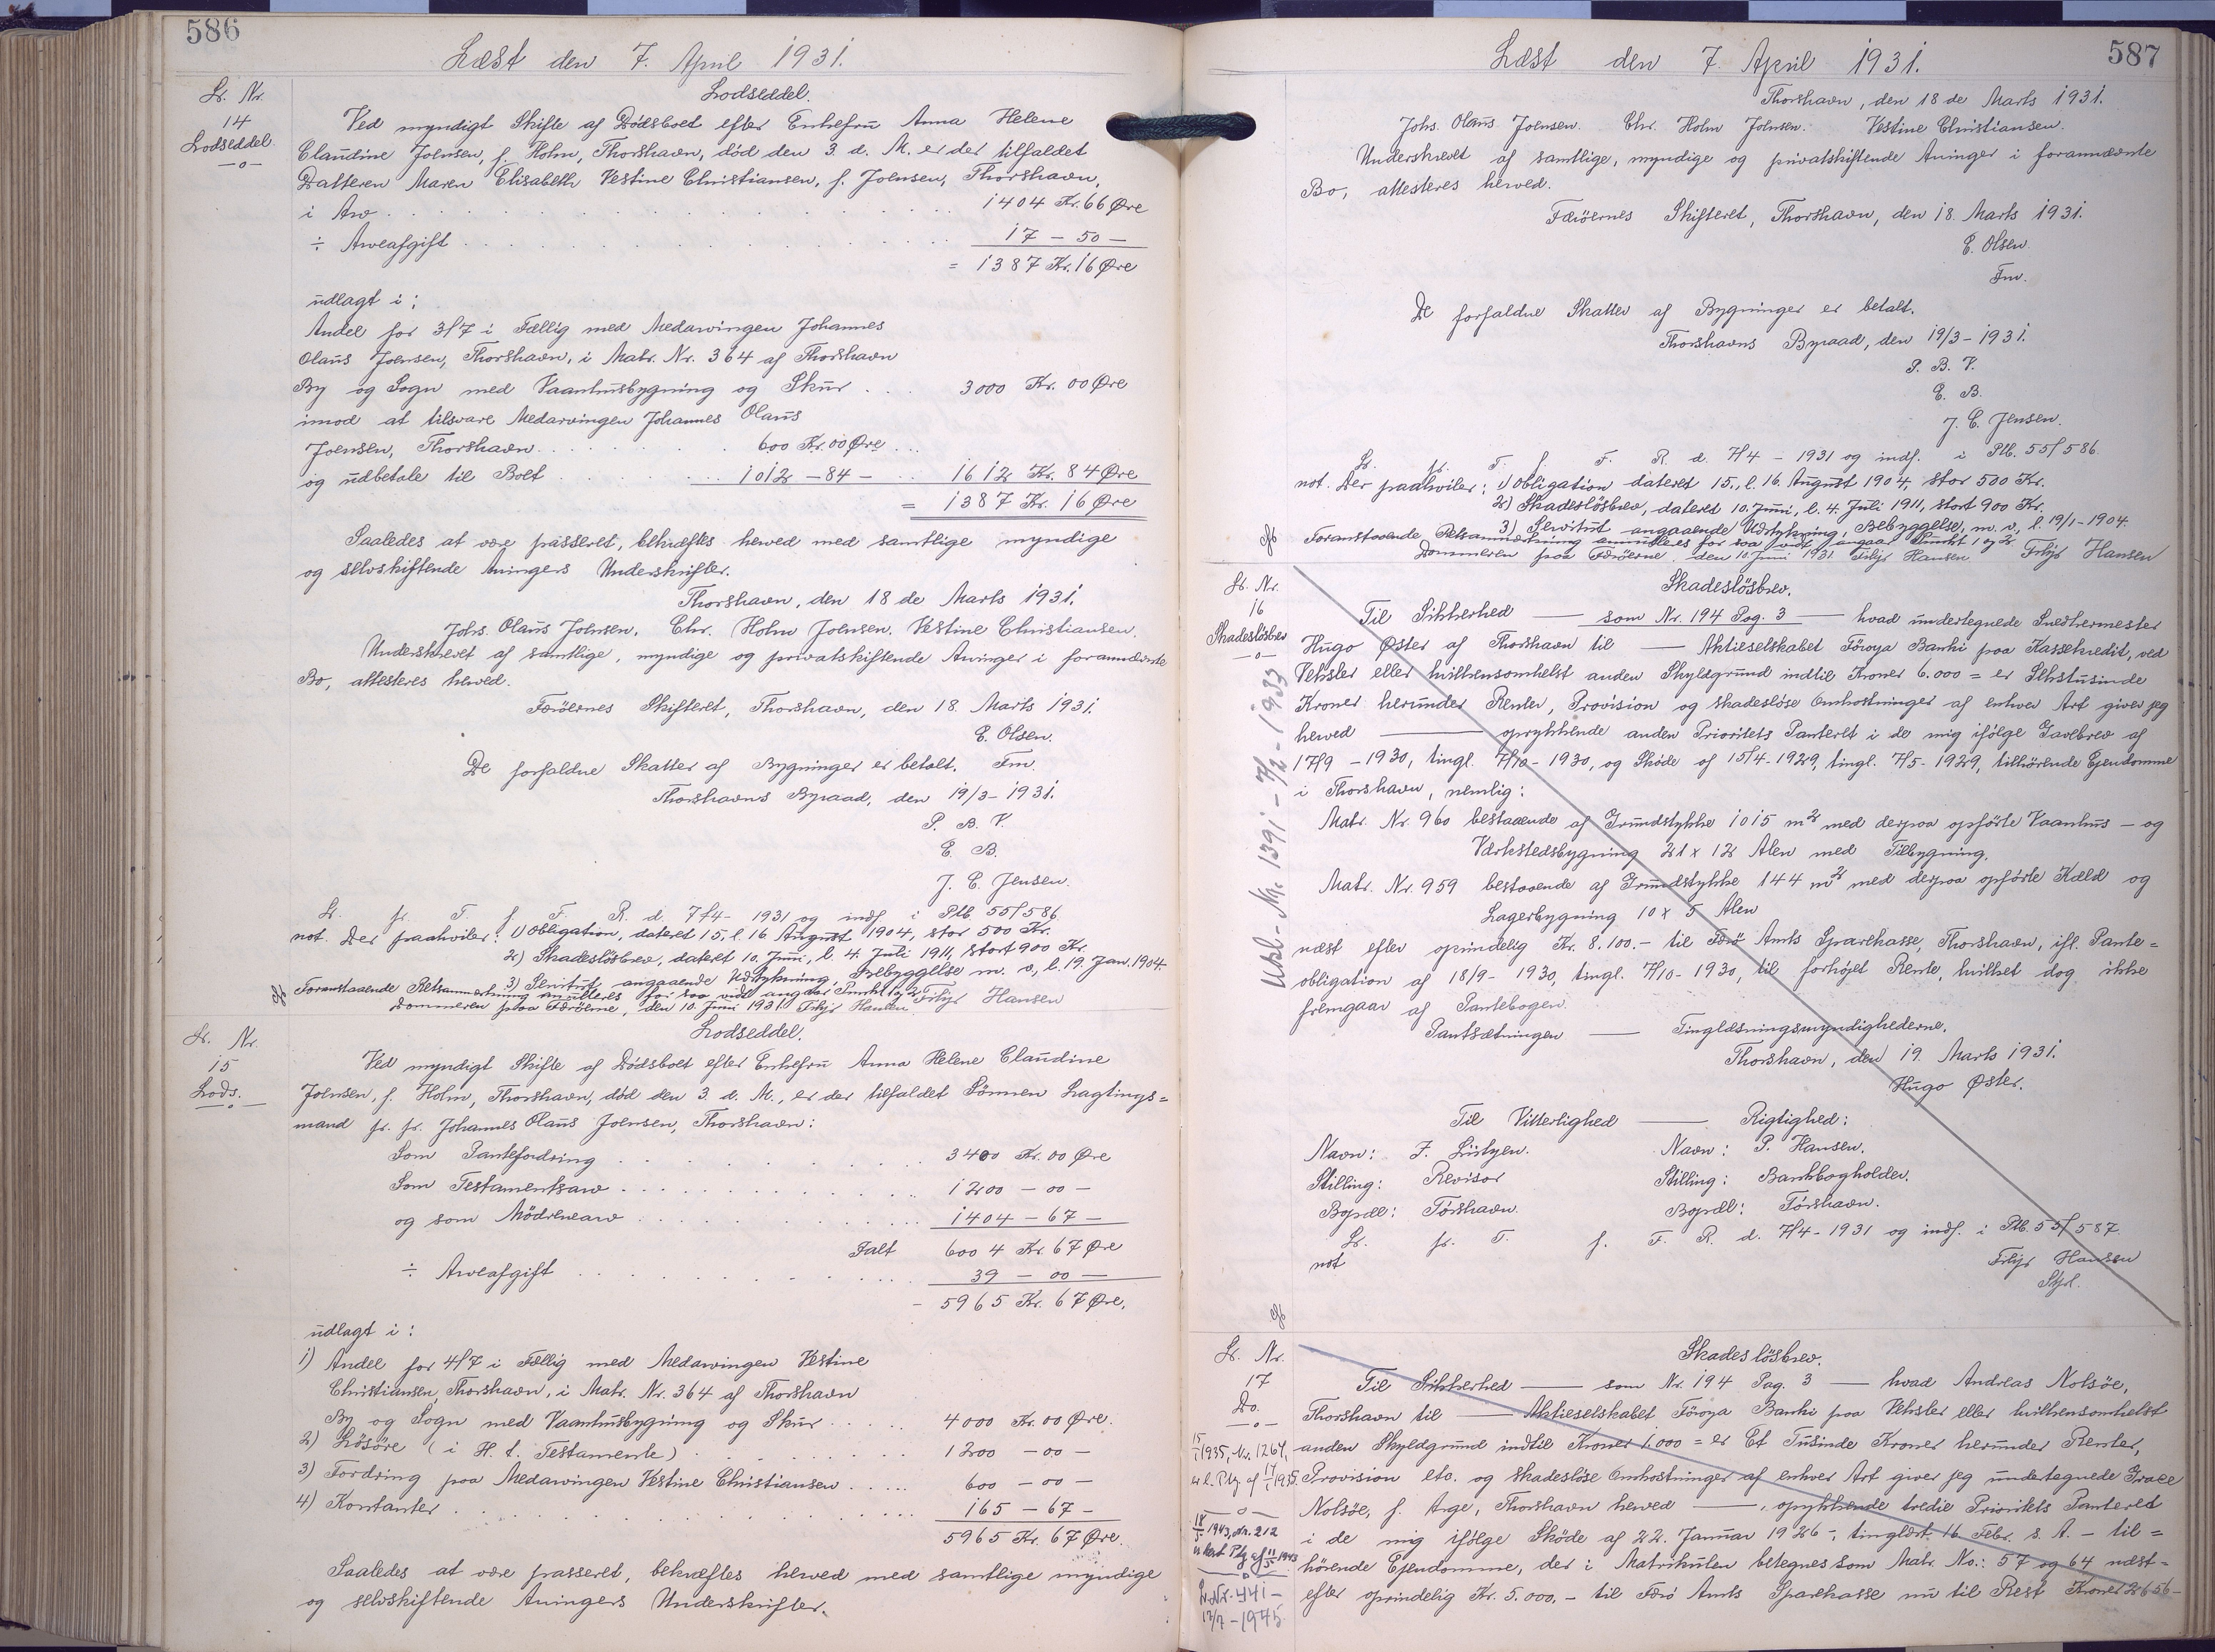 586
Læst den 7. April 1931.
Lb. Nr.
14
Lodseddel.
Lodseddel.
Ved myndigt Skifte af Dödsboet efter Enkefru Anna Helene
Claudine Joensen, f. Holm, Thorshavn, död den 3. d. M. er der tilfaldet
Datteren Maren Elisabeth Vestine Christiansen, f. Joensen, Thorshavn,
i Arv . . . 1404 Kr. 66 Øre
÷ Arveafgift . . . 17 — 50 —
= 1387 Kr. 16 Øre
udlagt i:
Andel for 3/7 i Fællig med Medarvingen Johannes
Olaus Joensen, Thorshavn, i Matr. Nr. 364 af Thorshavn
By og Sogn med Vaanhusbygning og Skur . . . 3000 Kr. 00 Øre
imod at tilsvare Medarvingen Johannes Olaus
Joensen, Thorshavn . . . 600 Kr. 00 Øre . . .
og udbetale til Boet . . . 1012 — 84 — . . . 1612 Kr. 84 Øre
= 1387 Kr. 16 Øre
Saaledes at være passeret, bekræftes herved med samtlige myndige
og selvskiftende Arvingers Underskrifter.
Thorshavn, den 18 de Marts 1931.
Johs. Olaus Joensen. Chr. Holm Joensen. Vestine Christiansen.
Underskrevet af samtlige, myndige og privatskiftende Arvinger i forannævnte
Bo, attesteres herved.
Færöernes Skifteret, Thorshavn, den 18. Marts 1931.
E. Olsen.
Fm.
De forfaldne Skatter af Bygninger er betalt.
Thorshavns Byraad, den 19/3 - 1931.
P. B. V.
E. B.
J. C. Jensen.
Lb. fr. T. f. F. R. d. 7/4 - 1931 og indf. i Ptb. 55/586.
not. Der paahviler: 1) Obligation, dateret 15, l. 16 August 1904, stor 500 Kr.
2) Skadeslösbrev, dateret 10. Juni, l. 4. Juli 1911, stort 900 Kr.
3) Servitut, angaaende Udstykning, Bebyggelse m. v., l. 19. Jan. 1904.
Foranstaaende Retsanmerkning annulleres for saa vidt angaar Punkt 1 og 2. Filip Hansen
Dommeren paa Færöerne, den 10. Juni 1931. Filip Hansen
Lb. Nr.
15
Lods.
Lodseddel.
Ved myndigt Skifte af Dödsboet efter Enkefru Anna Helene Claudine
Joensen, f. Holm, Thorshavn, död den 3. d. M., er der tilfaldet Sönnen Lagtings=
mand fr. fr. Johannes Olaus Joensen, Thorshavn:
Som Pantefordring . . . 3400 Kr. 00 Øre
Som Testamentsarv . . . 1200 — 00 —
og som Mödrenearv . . . 1404 — 67 —
Ialt 6004 Kr. 67 Øre
÷ Arveafgift . . . 39 — 00 —
- 5965 Kr. 67 Øre.
udlagt i:
1) Andel for 4/7 i Fællig med Medarvingen Vestine
Christiansen, Thorshavn, i Matr. Nr. 364 af Thorshavn
By og Sogn med Vaanhusbygning og Skur . . . 4000 Kr. 00 Øre.
2) Lösöre (i H. t. Testamente) . . . 1200 — 00 —
3) Fordring paa Medarvingen Vestine Christiansen . . . 600 — 00 —
4) Kontanter . . . 165 — 67 —
5965 Kr. 67 Øre.
Saaledes at være passeret, bekræftes herved med samtlige myndige
og selvskiftende Arvingers Underskrifter.
587
Læst den 7. April 1931.
Thorshavn, den 18 de Marts 1931.
Johs. Olaus Joensen. Chr. Holm Joensen. Vestine Christiansen.
Underskrevet af samtlige, myndige og privatskiftende Arvinger i forannævnte
Bo, attesteres herved.
Færöernes Skifteret, Thorshavn, den 18. Marts 1931.
E. Olsen.
Fm.
De forfaldne Skatter af Bygninger er betalt.
Thorshavns Byraad, den 19/3 - 1931.
P. B. V.
E. B.
J. C. Jensen.
Lb. fr. T. f. F. R. d. 7/4 - 1931 og indf. i Ptb. 55/586.
not. Der paahviler: 1) Obligation dateret 15., l. 16. August 1904, stor 500 Kr.
2) Skadeslösbrev, dateret 10. Juni, l. 4. Juli 1911, stort 900 Kr.
3) Servitut angaaende Udstykning, Bebyggelse, m. v., l. 19/1 - 1904.
Foranstaaende Retsanmærkning annulleres for saa vidt angaar Punkt 1 og 2. Filip Hansen
Dommeren paa Færöerne, den 10. Juni 1931. Filip Hansen
Lb. Nr.
16
Skadeslösbrev
Udsl- Nr. 1391 - 7/2 - 1933
Skadeslösbrev.
Til Sikkerhed — som Nr. 194 Pag. 3 — hvad undertegnede Snedkermester
Hugo Øster af Thorshavn til — Aktieselskabet Föroya Banki paa Kassekredit, ved
Veksler eller hvilkensomhelst anden Skyldgrund indtil Kroner 6.000 = er Sekstusinde
Kroner herunder Renter, Provision og skadeslöse Omkostninger af enhver Art giver jeg
herved — oprykkende anden Prioritets Panteret i de mig ifölge Gavebrev af
17/9 - 1930, tingl. 7/10 - 1930, og Sköde af 15/4 - 1929, tingl. 7/5 - 1929, tilhörende Ejendomme
i Thorshavn, nemlig:
Matr. Nr. 960 bestaaende af Grundstykke 1015 m² med derpaa opförte Vaanhus - og
Værkstedsbygning 21 x 12 Alen med Tilbygning.
Matr. Nr. 959 bestaaende af Grundstykke 144 m² med derpaa opförte Kæld og
Lagerbygning 10 x 5 Alen
næst efter oprindelig Kr. 8.100.- til Færö Amts Sparekasse, Thorshavn, ifl. Pante=
obligation af 18/9 - 1930, tingl. 7/10 - 1930, til forhöjet Rente, hvilket dog ikke
fremgaar af Pantebogen.
Pantsætningen — Tinglæsningsmyndighederne.
Thorshavn, den 19. Marts 1931.
Hugo Øster.
Til Vitterlighed — Rigtighed:
Navn: Navn: P. Hansen.
Stilling: Revisor Stilling: Bankbogholder.
Bopæl: Tórshavn. Bopæl: Tórshavn.
Lb. fr. T. f. F. R. d. 7/4 - 1931 og indf. i Ptb. 55/587.
not
Filip Hansen
Lb. Nr.
17
Do.
15/1 1935, Nr. 1264,
18/5 1943, Nr. 212
L. Nr. 441 -
12/7 - 1945
Skadeslösbrev.
Til Sikkerhed — som Nr. 194 Pag. 3 — hvad Andreas Nolsöe,
Thorshavn til — Aktieselskabet Föroya Banki paa Veksler eller hvilkensomhelst
anden Skyldgrund indtil Kroner 1.000 = er Et Tusinde Kroner herunder Renter,
Provision etc. og skadeslöse Omkostninger af enhver Art giver jeg undertegnede Grace
Nolsöe, f. Arge, Thorshavn herved — , oprykkende tredie Prioritets Panteret
i de mig ifölge Sköde af 22. Januar 1926 -, tinglæst. 16 Febr. s. A. - til=
hörende Ejendomme, der i Matrikulen betegnes som Matr. No.: 57 og 64 næst-
efter oprindelig Kr. 5.000. - til Færö Amts Sparekasse nu til Rest Kroner 2656-